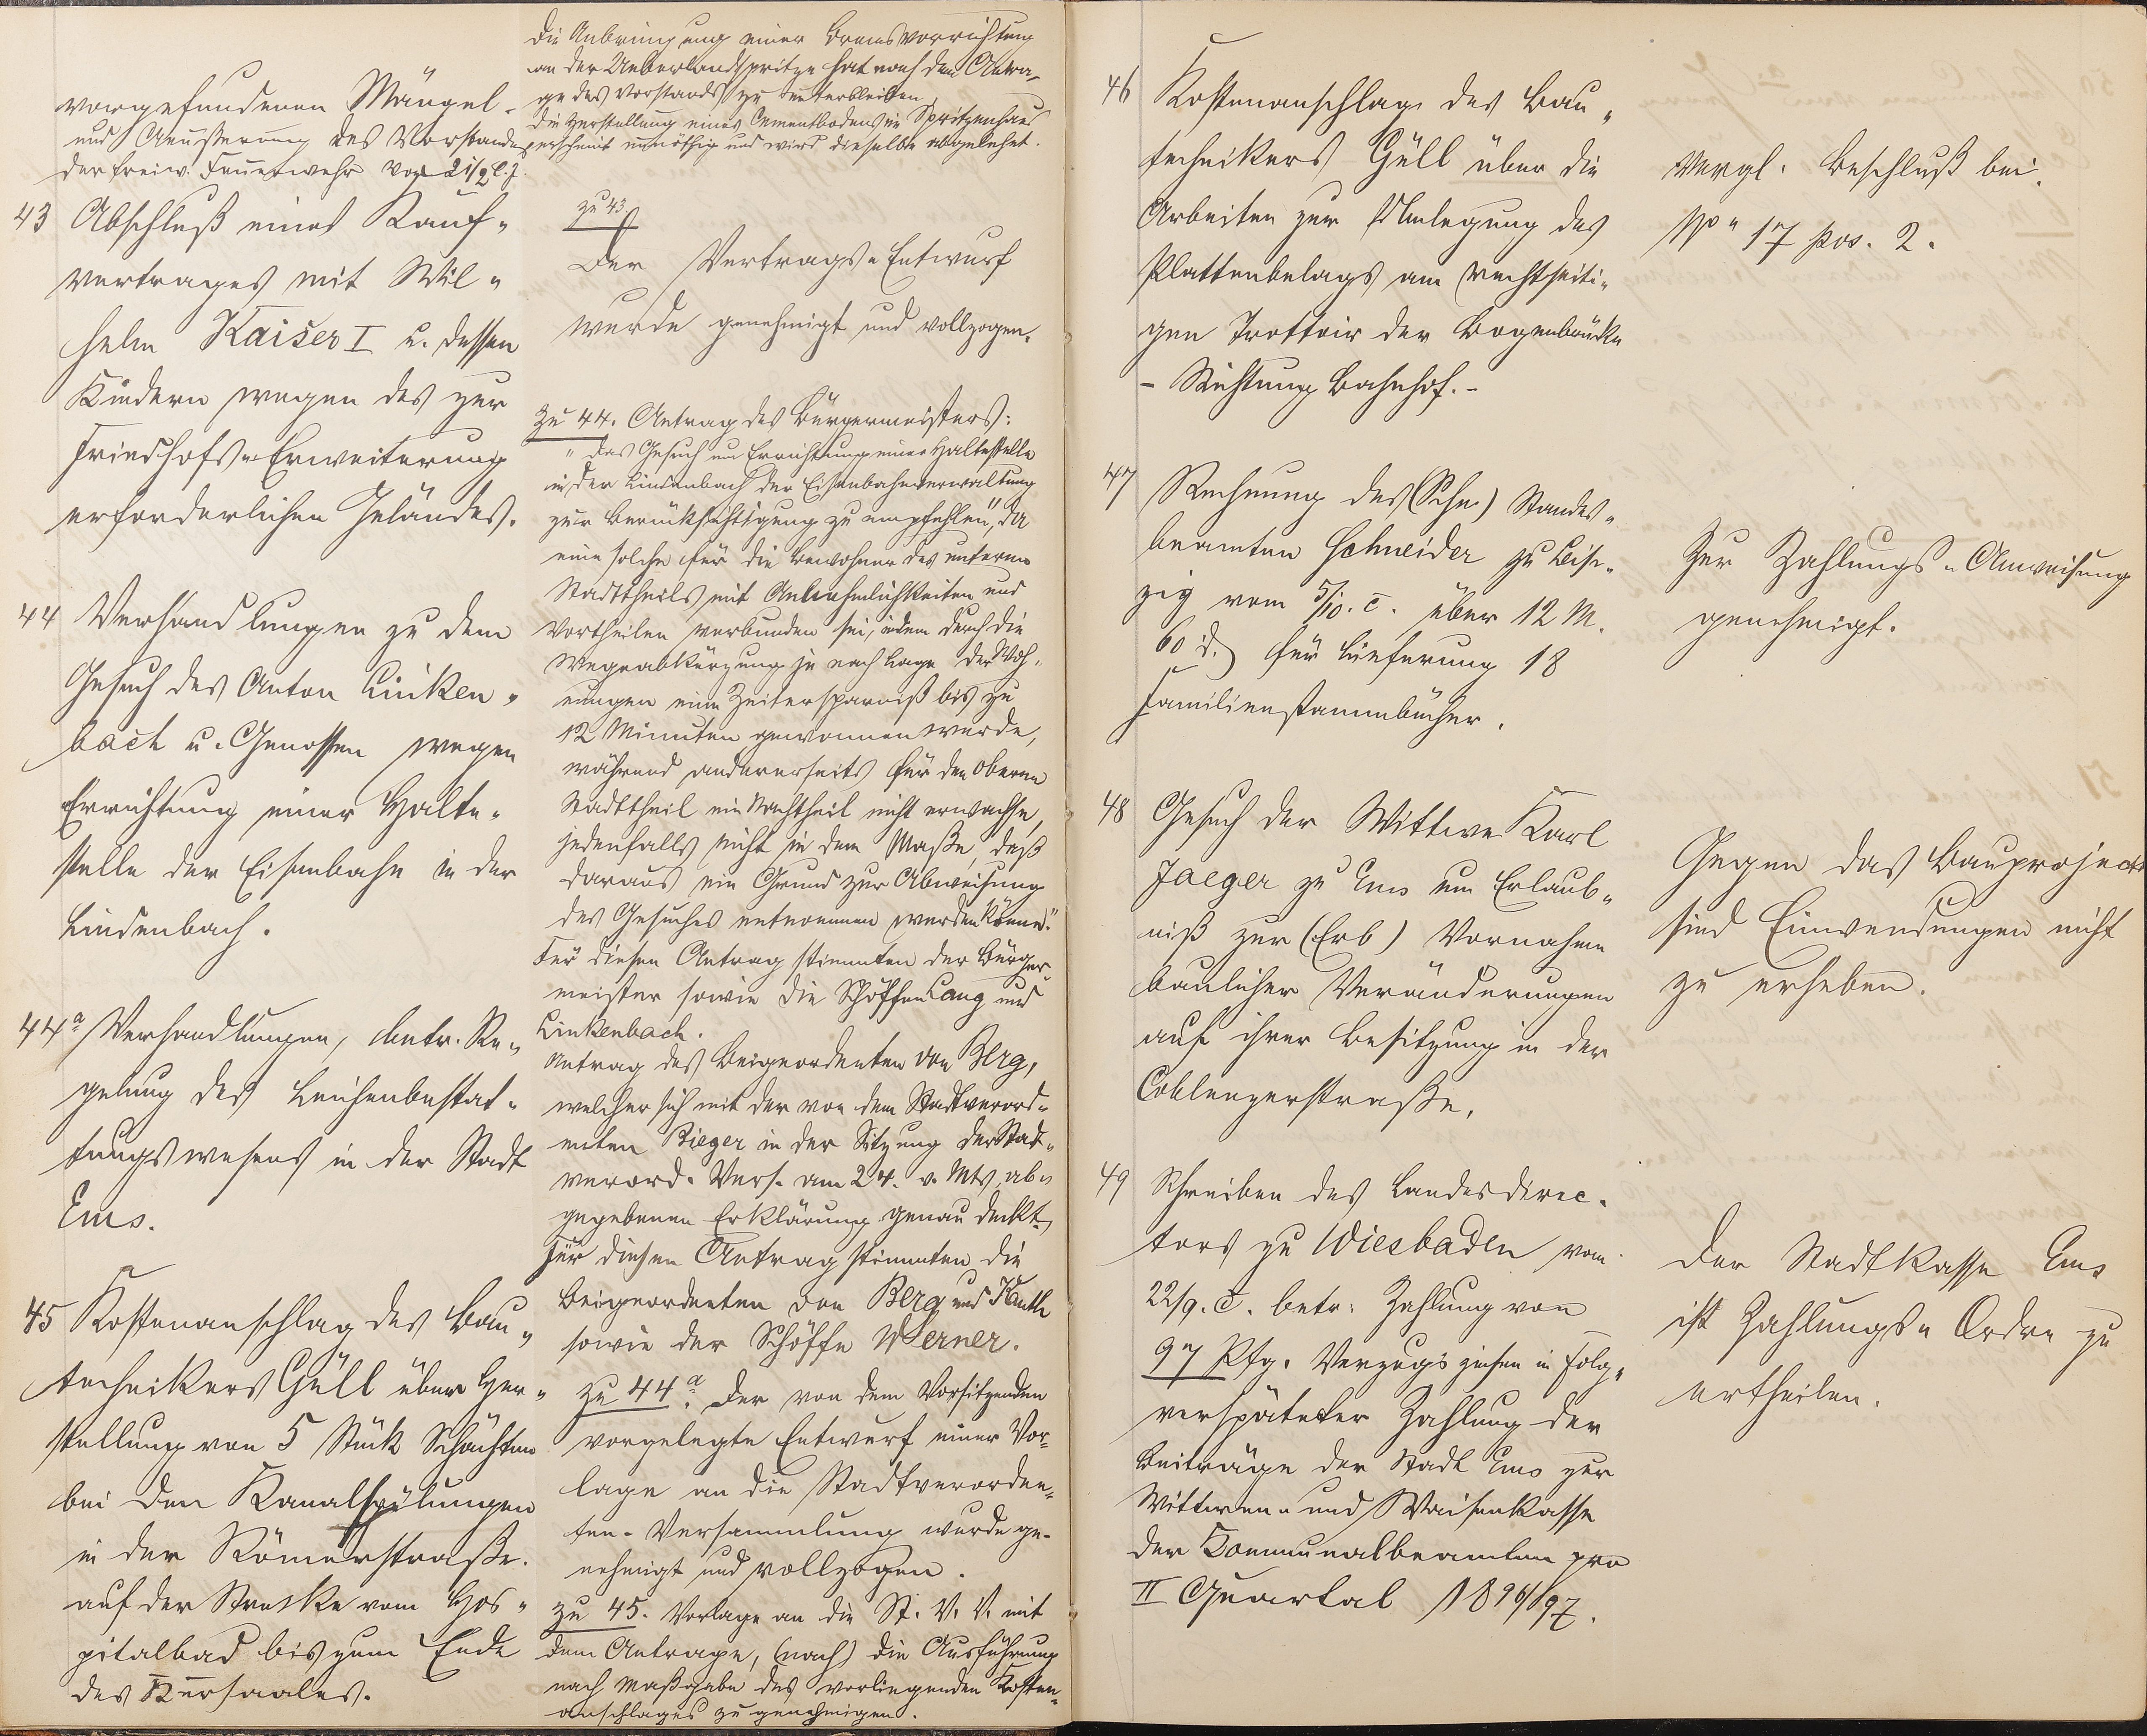 vorgefundenen Mängel
und Aeußerung des Vorstandes
der freiw. Feuerwehr vom 21/9 l. J.
43 Abschluß eines Kauf-
vertrages mit Wil-
helm Kaiser I u. dessen
Kindern wegen des zur
Friedhofs-Erweiterung
erforderlichen Geländes.
44 Verhandlungen zu dem
Gesuch des Anton Linken-
bach u. Genossen wegen
Errichtung einer Halte-
stelle der Eisenbahn in der
Lindenbach.
44a Verhandlungen, betr. Re-
gelung des Leichenbestat-
tungswesens in der Stadt
Ems.
45 Kostenanschlag des Bau-
technikers Güll über Her-
stellung von 5 Stück Schächten
bei den Kanalspülungen
in der Römerstraße
auf der Strecke vom Hos-
pitalbad bis zum Ende
des Kursaales.
Die Anbringung einer Bremsvorrichtung
an der Ueberlandspritze hat nach dem Antra-
ge des Vorstands zu unterbleiben,
die Herstellung eines Cementbodens im Spritzenhaus
erscheint unnöthig und wird dieselbe abgelehnt.
zu 43.
Der Vertrags-Entwurf
wurde genehmigt und vollzogen.
Zu 44. Antrag des Bürgermeisters:
"das Gesuch um Errichtung einer Haltestelle
in der Lindenbach der Eisenbahnverwaltung
zur Berücksichtigung zu empfehlen", da
eine solche für die Bewohner des unteren
Stadttheils mit Annehmlichkeiten und
Vortheilen verbunden sei, indem durch die
Wegeabkürzung je nach Lage der Woh-
nungen eine Zeitersparniß bis zu
12 Minuten gewonnen werde,
während andererseits für den oberen
Stadttheil ein Nachtheil nicht erwachse,
jedenfalls nicht in dem Maße, daß
daraus ein Grund zur Abweisung
des Gesuches entnommen werden könne."
Für diesen Antrag stimmten der Bürger-
meister sowie die Schöffen Lang und
Linkenbach.
Antrag des Beigeordneten von Berg,
welcher sich mit der von dem Stadtverord-
neten Rieger in der Sitzung der Stadt-
verord. Vers. am 24. v. Mts. ab-
gegebenen Erklärung genau deckt.
Für diesen Antrag stimmten die
Beigeordneten von Berg und
sowie der Schöffe Werner.
Zu 44a. Der von dem Vorsitzenden
vorgelegte Entwurf einer Vor-
lage an die Stadtverordne-
ten-Versammlung wurde ge-
nehmigt und vollzogen.
Zu 45. Vorlage an die St. V. V. mit
dem Antrage, (nach) die Ausführung
nach Maßgabe des vorliegenden Kosten-
anschlages zu genehmigen.
46 Kostenanschlag des Bau-
technikers Güll über die
Arbeiten zur Umlegung des
Plattenbelags am rechtseiti-
gen Trottoir der Bogenbrücke
- Richtung Bahnhof. -
47 Rechnung des (Schn) Standes-
beamten Schneider zu Leip-
zig vom 5/10. c. über 12 M.
60 d. für Lieferung 18
Familienstammbücher.
48 Gesuch der Wittwe Karl
Jaeger zu Ems um Erlaub-
niß zur (Erb) Vornahme
baulicher Veränderungen
auf ihrer Besitzung in der
Coblenzerstraße.
49 Schreiben des Landesdirec-
tors zu Wiesbaden vom
22/9. c. betr. Zahlung von
97 Pfg. Verzugszinsen in Folge
verspäteter Zahlung der
Beiträge der Stadt Ems zur
Wittwen- und Waisenkasse
der Kommunalbeamten pro
II Quartal 1896/97.
Vergl. Beschluß bei
No 17 pos. 2.
Zur Zahlungs-Anweisung
genehmigt.
Gegen das Bauproject
sind Einwendungen nicht
zu erheben.
Der Stadtkasse Ems
ist Zahlungs-Ordre zu
ertheilen.